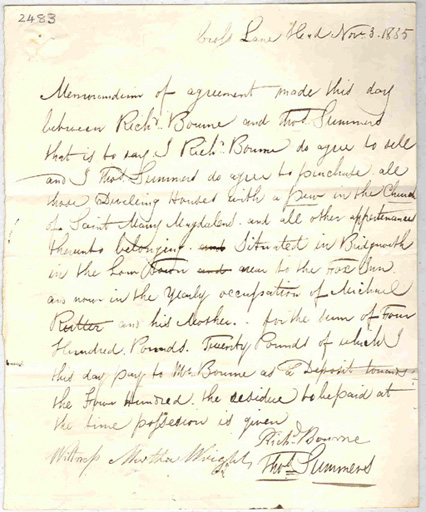 2483
Cross Lane Head Nov. 3. 1835
Memorandum of agreement made this day
between Richd. Bourne and Thos. Summers
that is to say I Richd. Bourne do agree to sell
and I Thos. Summers do agree to purchase all
those Dwelling Houses with a pew in the Church
of Saint Mary Magdalens. and all other appertenance
thereunto belonging. and Situated in Bridgnorth
in the Low Town and near to the Fox Inn
as now in the Yearly occupation of Michael
Rutter and his Mother. for the sum of Four
Hundred Pounds. Twenty Pounds of which I
this day pay to Mr. Bourne as a Deposit towards
the Four Hundred. the residue to be paid at
the time possession is given
Richd. Bourne
Witness Martha Wright
Thos. Summers